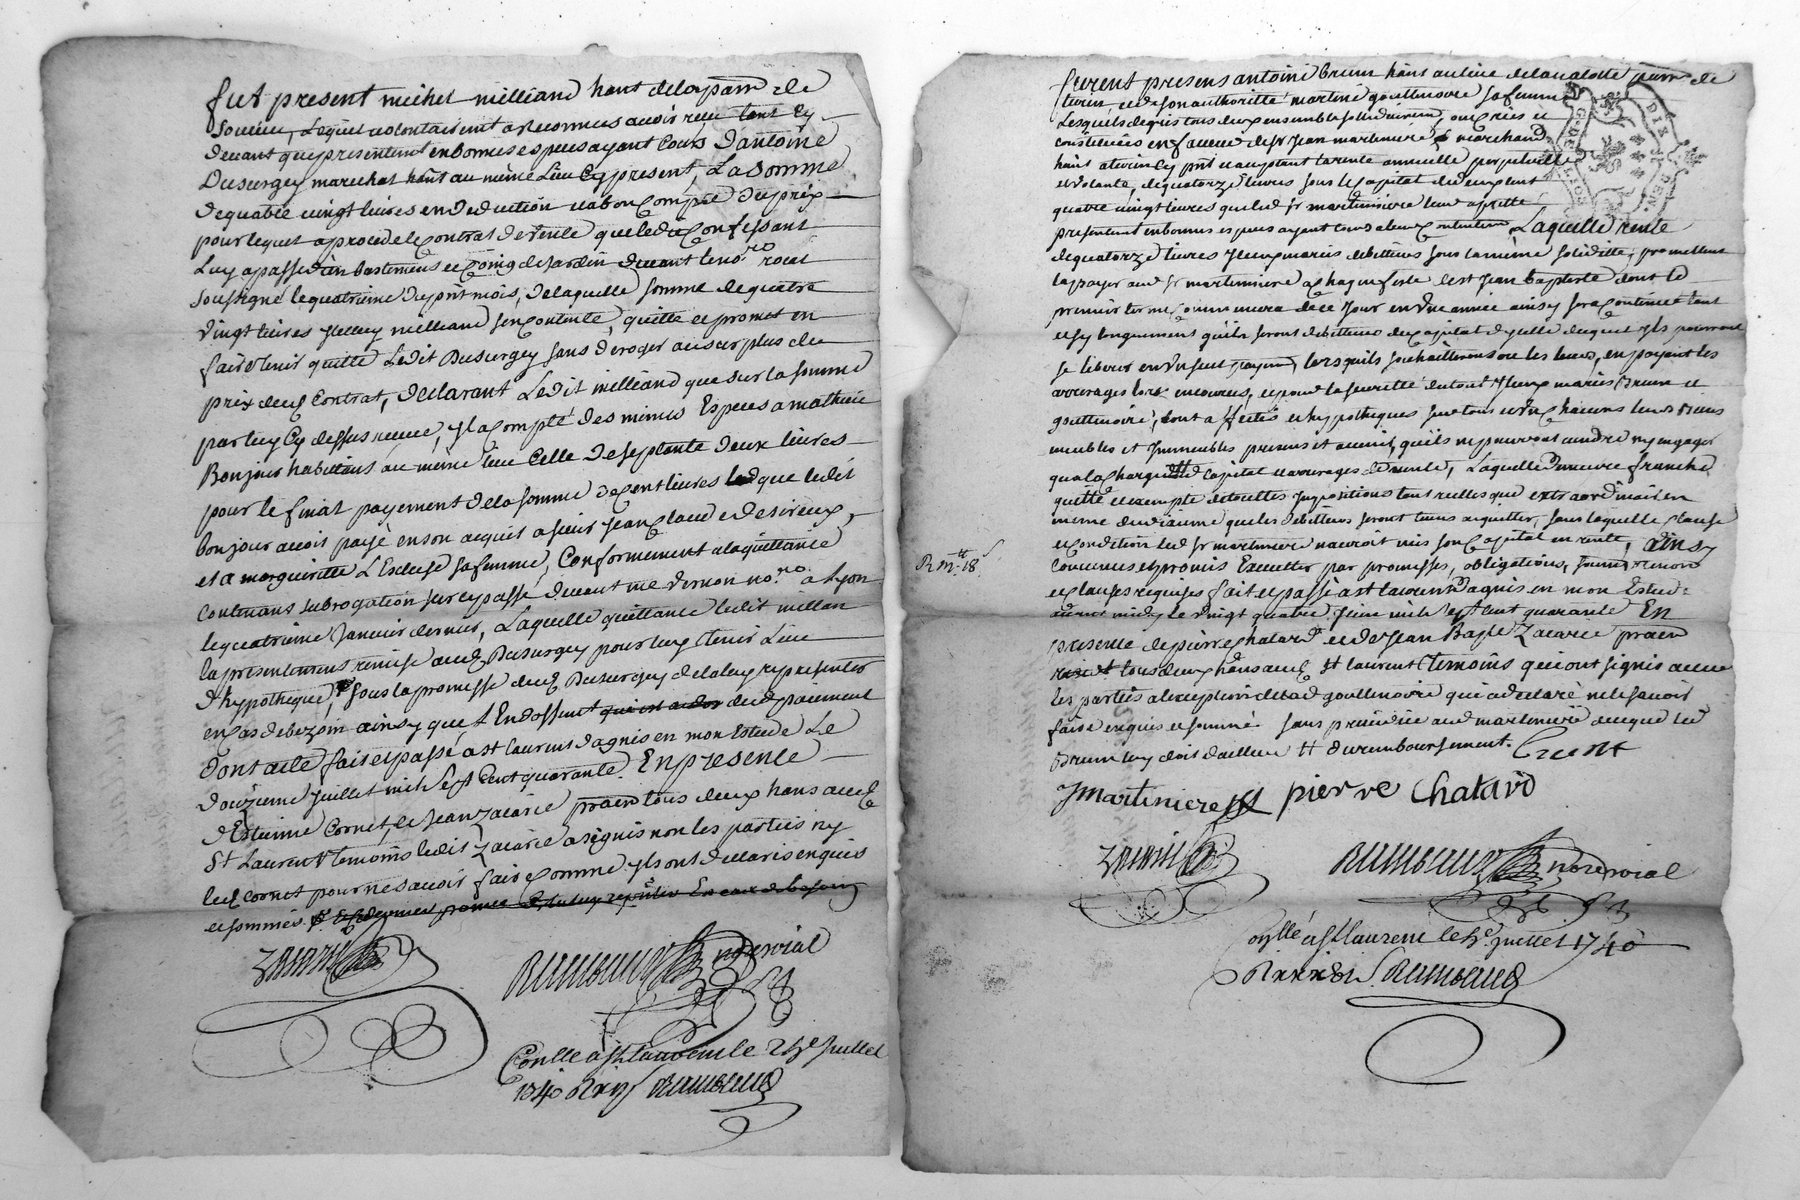 fut present michel milliand hant delap parr de
soucieu, Lequel volontairemt a Reconnus avoir receu tant cy
devant que presentemt en bonnes especes ayant Cours d'antoine
Dusurgey marechal hant au même Lieu Cy present, La Somme
de quatre vingt livres en deduction et a bon Compte du prix
pour lequel a procedé le Contrat de vente que led Confessant
Luy a passé d'un bastiment et Coing de Jardin devant le nore royal
soussigné le quatrieme du pnt mois, de laquelle somme de quatre
vingt livres Jcelluy milliand s'en contente, quitte et promet en
faire tenir quitte Ledit Dusurgey sans deroger au surplus du
prix dud Contrat, declarant Ledit milliand que sur la somme
par luy Cy dessus receue, il a compté des mêmes Especes a mathieu
Bonjour habittant au même lieu Celle de septante deux livres
pour le final payement de la somme de cent livres que ledit
bonjour avoit payé en son acquit a sieur Jean Claude desireux
et a margueritte L'Escluse sa femme, Conformement a la quittance
Contenant subrogation sur ce passé devant me vernon nore a Lyon
le quatrieme Janvier dernier, Laquelle quittance ledit millan
la presentement remise aud Dusurgey pour luy tenir Lieu
d'hypotheque, sous la promesse dud Dusurgey de la luy representer
en cas de bezoin ainsy que l'Endossemt qui est au dos dud paiement
Dont acte fait et passé a st laurent d'agnis en mon Estude Le
douzieme Juillet mil sept Cent quarante. En presence
d'Estienne Cornet, et Jean zacarie praen tous deux hans aud
St Laurent temoins ledit zacarie a signés non les parties ny
led Cornet pour ne sçavoir faire comme ils ont declarés enquis
et sommés.
zacarie Rambaud nore royal
Conllé a St Laurent le 24e Juillet
1740 Rambaud
furent presens antoine brun hant au lieu de la valotte parr de
turin, et de son authoritté martine goultenoire sa femme
Lesquels de gré tous deux ensemble solidairemt, ont crées et
constituées en faveur de sr Jean martiniere marchand
hant a turin Cy pnt et acceptant la rente annuelle perpetuelle
et volante, de quatorze livres sous le Capital de deux cent
quatre vingt livres que led sr martiniere leur a prette
presentemt en bonnes especes ayant cours a leur contentemt Laquelle rente
de quatorze livres Jceux mariés debitteurs sous la même soliditté, promettent
la payer aud sr martiniere a chaque feste de st Jean baptiste dont le
premier terme commencera de ce Jour en une année ainsy sera continuée tant
et sy longuement qu'ils seront debitteurs du Capital d'icelle duquel ils pourront
se liberer en un seul payemt, lors qu'ils souhaitteront ou les leurs, en payant les
arrerages lors encourus, et pour la seuretté du tout Jceux mariés Brun et
goultenoire, ont affectés et hypothequés sur tous et un chacuns leurs biens
meubles et Jmmeubles presens et avenir, qu'ils ne pourront vendre ny engager
qu'a la charge dud Capital et arrerages de rente, Laquelle demeure franche
quitte et exempte de touttes Jmpositions tant reelles que extraordinaires
même du dixieme que les debitteurs seront tenus acquitter, sans laquelle clause
et condition led sr martiniere n'auroit mis son Capital en rente, Ainsy
convenus et promis Executter par promesses, obligations, soumr renon
et clauses requises fait et passé a st laurent d'agnis en mon Estude
avant midy le vingt quatre Juin mil sept cent quarante En
presence de pierre chatard et de Jean Bapte zacarie praen
tous deux hans aud St laurent temoins qui ont signés avec
les parties a l'exception de lad goultenoire qui a declaré ne le sçavoir
faire enquise et sommé sans prejudice aud martiniere de ce que led
Brun luy doit d'ailleurs et du remboursement. brunt
Jmartiniere pierre Chatard
zacarie Rambaud nore royal
Conllé a St laurent le 4e Juillet 1740
Rambaud
DIX DEN.